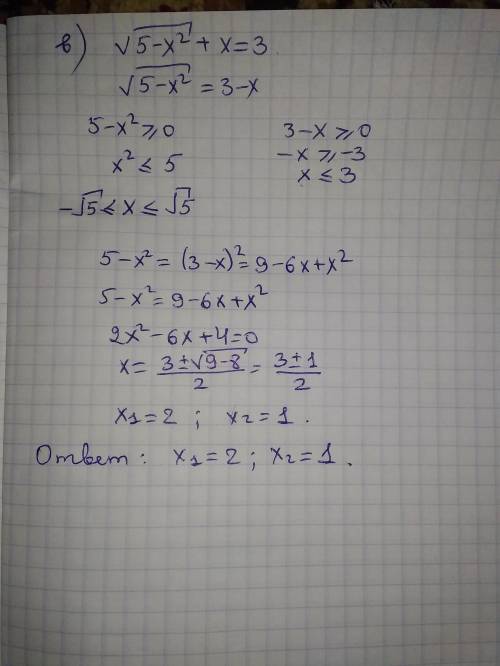 в) √(5-x²) + x = 3
√(5-x²) = 3-x
5-x² ⩾ 0 3-x ⩾ 0
x² ≤ 5 -x ⩾ -3
-√5 ≤ x ≤ √5 x ≤ 3
5-x² = (3-x)² = 9-6x+x²
5-x² = 9-6x+x²
2x²-6x+4=0
x = (3±√(9-8))/2 = (3±1)/2
x₁=2 ; x₂=1 .
Ответ : x₁=2 ; x₂=1 .